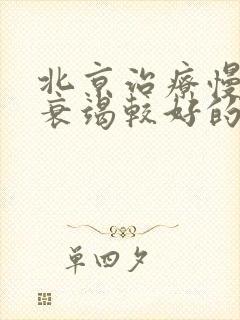 北京治疗慢
衰竭较好的
单四夕